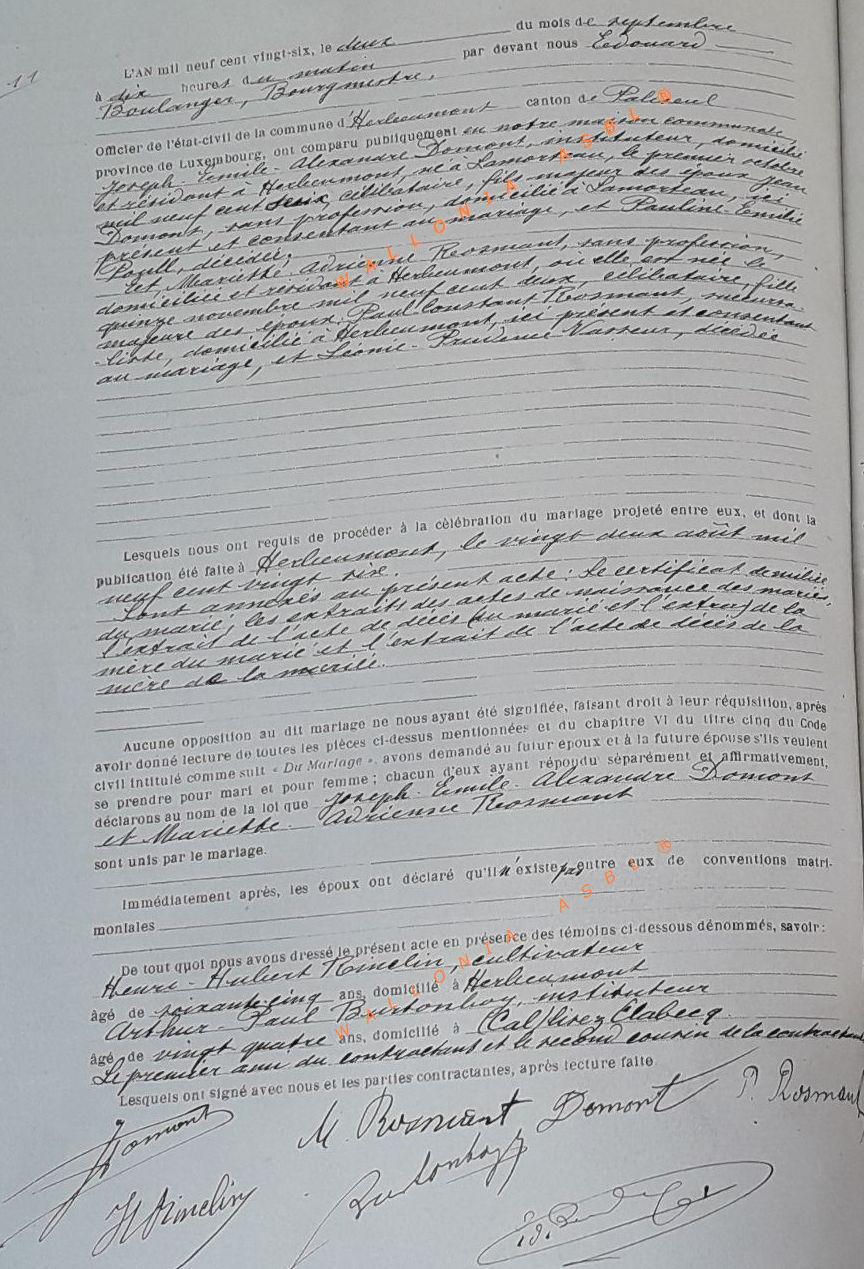 11
L'AN mil neuf cent vingt-six, le deux du mois de septembre
à dix heures du matin par devant nous Edouard
Boulanger, Bourgmestre,
Officier de l'état-civil de la commune d'Herbeumont canton de Paliseul
province de Luxembourg, ont comparu publiquement en notre maison communale,
Joseph-Emile-Alexandre Domont, instituteur, domicilié
et résidant à Herbeumont, né à Lamorteau, le premier octobre
mil neuf cent , célibataire, fils majeur des époux Jean
Domont, sans profession, domicilié à Lamorteau, ici
présent et consentant au mariage, et Pauline-Emilie
décédée.
Et Mariette-Adrienne Rosmant, sans profession,
domiciliée et résidant à Herbeumont, où elle est née le
quinze novembre mil neuf cent deux, célibataire, fille
majeure des époux Paul-Constant Rosmant,
domicilié à Herbeumont, ici présent et consentant
au mariage, et Léonie-Prudence Vasseur, décédée
Lesquels nous ont requis de procéder à la cèlébration du mariage projeté entre eux, et dont la
publication été faite à Herbeumont, le vingt deux août mil
neuf cent vingt six.
Sont annexés au présent acte: Le certificat de milice
du marié, les extraits des actes de naissance des mariés,
l'extrait de l'acte de décès de la
mère du marié et l'extrait de l'acte de décès de la
mère de la mariée.
Aucune opposition au dit mariage ne nous ayant été signifiée, faisant droit à leur réquisition, après
avoir donné lecture de toutes les pièces ci-dessus mentionnées et du chapitre VI du titre cinq du Code
civil intitulé comme suit « Du Mariage ». avons demandé au futur époux et à la future épouse s'ils veulent
se prendre pour mari et pour femme ; chacun d'eux ayant répondu séparément et affirmativement,
déclarons au nom de la loi que Joseph-Emile-Alexandre Domont
et Mariette-Adrienne Rosmant
sont unis par le mariage.
Immédiatement après, les époux ont déclaré qu'il n'existe pas entre eux de conventions matri-
moniales
De tout quoi nous avons dressé le présent acte en présence des témoins ci-dessous dénommés, savoir:
Henri-Hubert Rinclin, cultivateur
âgé de soixante-cinq ans, domicilié à Herbeumont
Arthur-Paul Burtonboy, instituteur
âgé de vingt quatre ans, domicilié à Clabecq.
Le premier ami du contractant et le second cousin de la contractante
Lesquels ont signé avec nous et les parties contractantes, après lecture faite
JDomont M. Rosmant Domont P. Rosmant
H Rinclin Burtonboy Ed. Boulanger
WALLONIA ASBL ®
WALLONIA ASBL ®